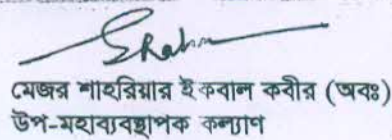 মেজর শাহরিয়ার ইকবাল কবীর (অবঃ)
উপ-মহাব্যবস্থাপক কল্যাণ